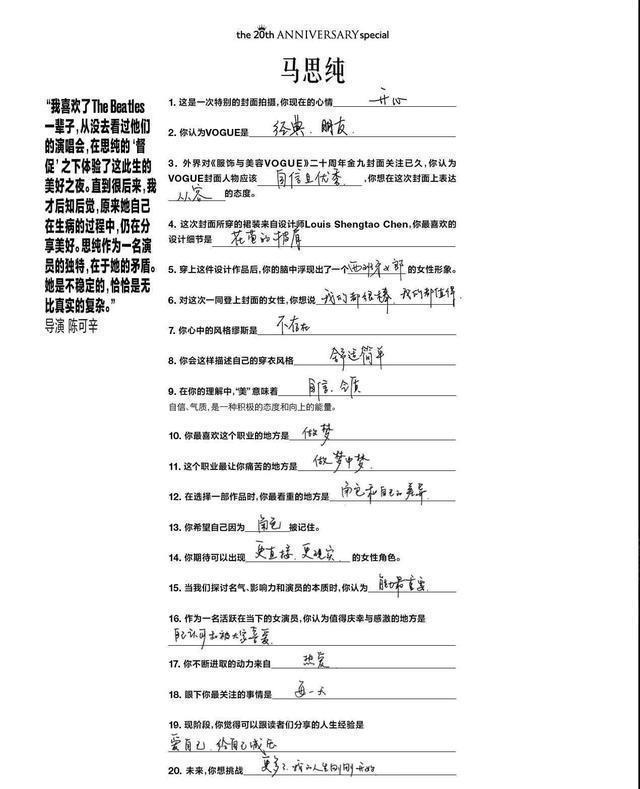 the 20th ANNIVERSARY special
马思纯
“我喜欢了The Beatles
一辈子,从没去看过他们
的演唱会,在思纯的‘督
促’之下体验了这此生的
美好之夜。直到很后来,我
才后知后觉,原来她自己
在生病的过程中,仍在分
享美好。思纯作为一名演
员的独特,在于她的矛盾。
她是不稳定的,恰恰是无
比真实的复杂。”
导演 陈可辛
1. 这是一次特别的封面拍摄,你现在的心情 开心
2. 你认为VOGUE是 经典、朋友
3. 外界对《服饰与美容VOGUE》二十周年金九封面关注已久,你认为
VOGUE封面人物应该 自信且优秀 ,你想在这次封面上表达
从容 的态度。
4. 这次封面所穿的裙装来自设计师Louis Shengtao Chen,你最喜欢的
设计细节是 花苞的裙摆
5. 穿上这件设计作品后,你的脑中浮现出了一个 西班牙女郎 的女性形象。
6. 对这次一同登上封面的女性,你想说 我们都很棒、我们都值得
7. 你心中的风格缪斯是 不存在
8. 你会这样描述自己的穿衣风格 舒适简单
9. 在你的理解中,“美”意味着 自信、气质
自信、气质,是一种积极的态度和向上的能量。
10. 你最喜欢这个职业的地方是 做梦
11. 这个职业最让你痛苦的地方是 做梦中梦
12. 在选择一部作品时,你最看重的地方是 角色和自己的差异
13. 你希望自己因为 角色 被记住。
14. 你期待可以出现 更直接、更现实 的女性角色。
15. 当我们探讨名气、影响力和演员的本质时,你认为 能力最重要
16. 作为一名活跃在当下的女演员,你认为值得庆幸与感激的地方是
自己认可且被大家喜爱
17. 你不断进取的动力来自 热爱
18. 眼下你最关注的事情是 每一天
19. 现阶段,你觉得可以跟读者们分享的人生经验是
爱自己、给自己减压
20. 未来,你想挑战 更多、我的人生刚刚开始